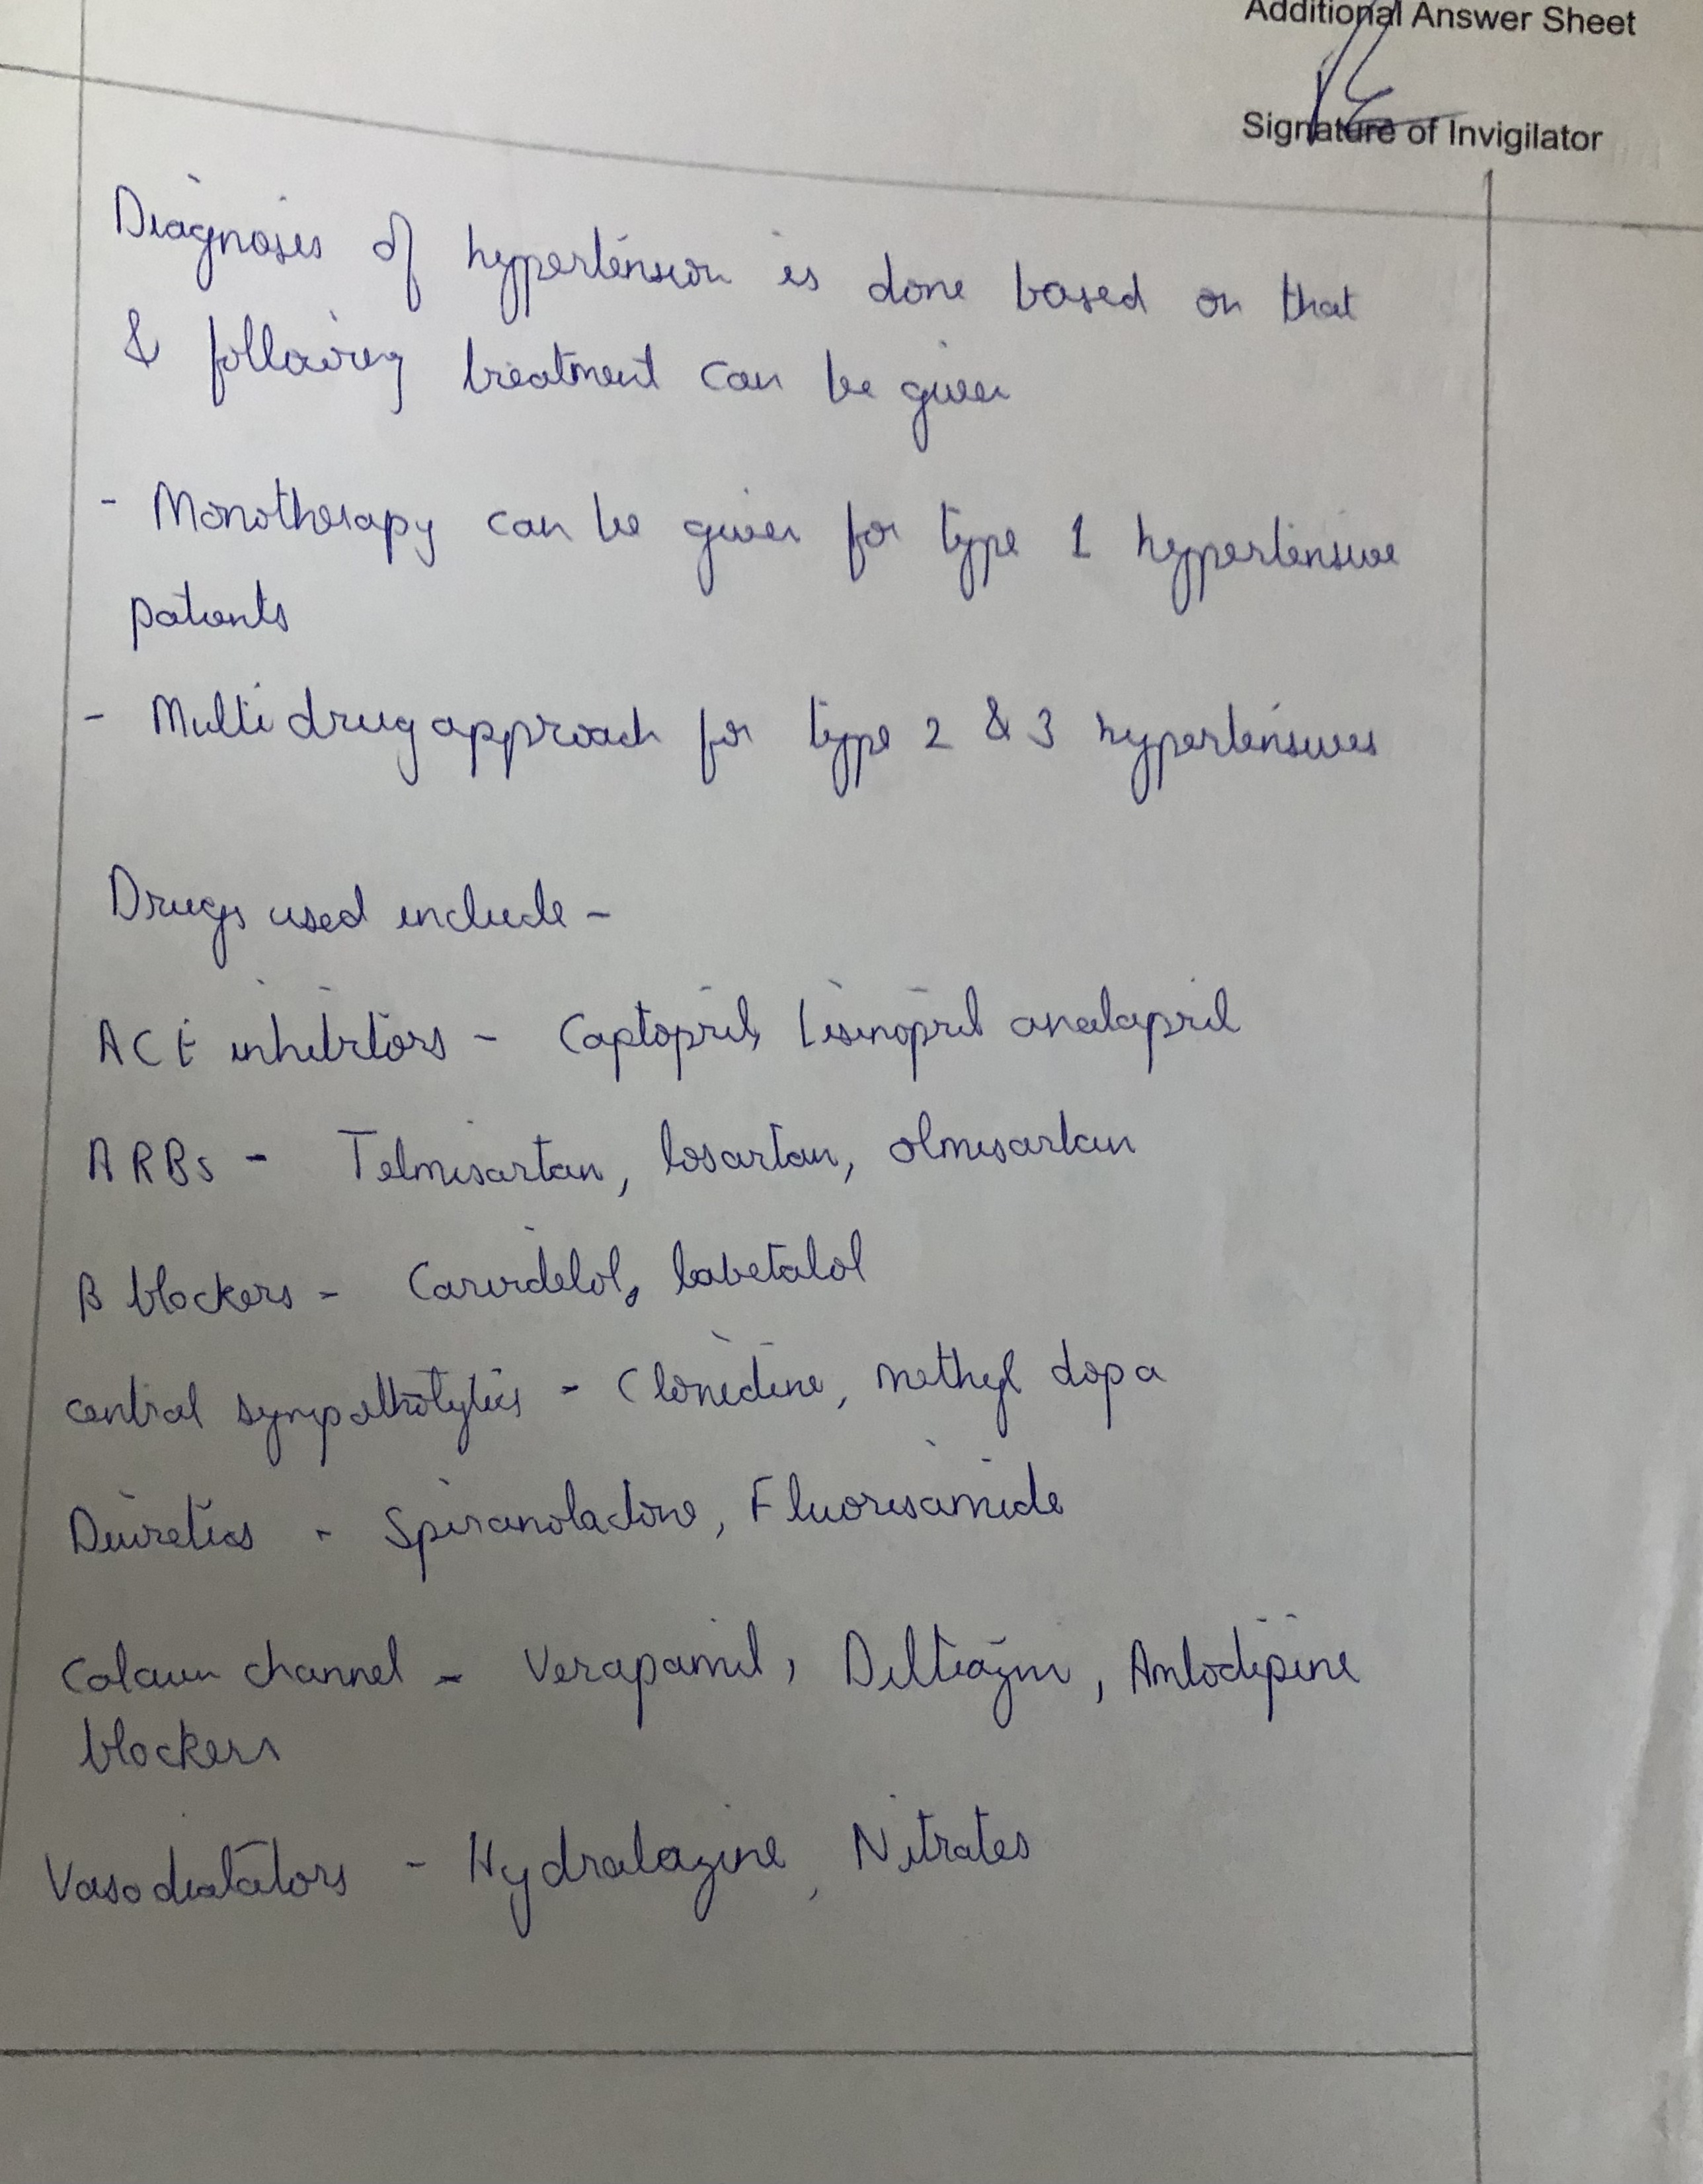 Additional Answer Sheet
Signature of Invigilator
Diagnosis of hypertension is done based on that
& following treatment can be given
- Monotherapy can be given for type 1 hypertensive
patients
- Multi drug approach for type 2 & 3 hypertensives
Drugs used include -
ACE inhibitors - Captopril, Lisinopril analapril
ARBs - Telmisartan, losartan, olmisartan
B blockers - Carvidelol, labetalol
central sympatholytics - Clonidine, methyl dopa
Diuretics - Spiranolactone, Fluorisamide
Calcium channel - Verapamil, Diltiazm, Amlodipine
blockers
Vasodialators - Hydralazine, Nitrates